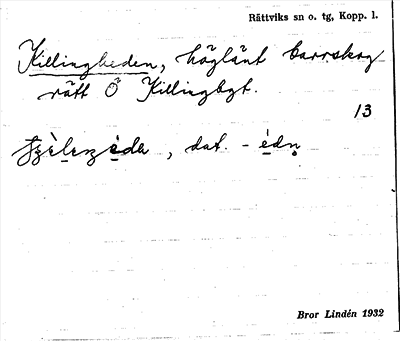 Rättviks sn o. tg, Kopp. l.
Killingheden, höglänt barrskog
rätt Ö Killingbgt.
13
, dat. - èdn̥
Bror Lindén 1932